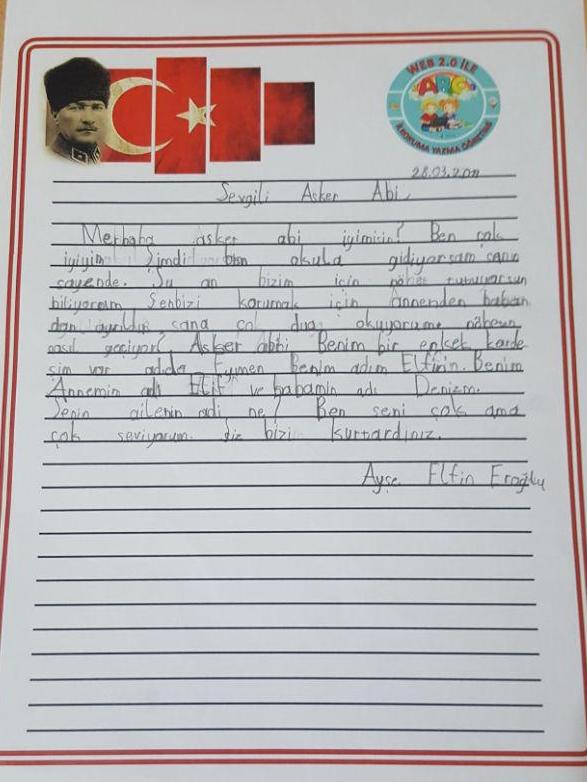 WEB 2.0 İLE
ABC
İLKOKUMA YAZMA ÖĞRETİMİ
28.03.20
Sevgili Asker Abi
Merhaba asker abi iyimisin? Ben çok
iyiyim Şimdi ben okula gidiyorsam senin
sayende. Şu an bizim için nöbet tutuyorsun
biliyorum Senbizi korumak için annenden baban
dan ayrıldın sana çok dua okuyorum nöbeun
nasıl geçiyor? Asker abhi Benim bir erkek karde
şim var adıda Eymen Benim adım Elfin. Benim
Annemin adı Elif ve babamin adı Denizm.
Senin ailenin adı ne? Ben seni çok ama
çok seviyorum. Siz bizi kurtardınız.
Ayşe Elfin Eroğlu